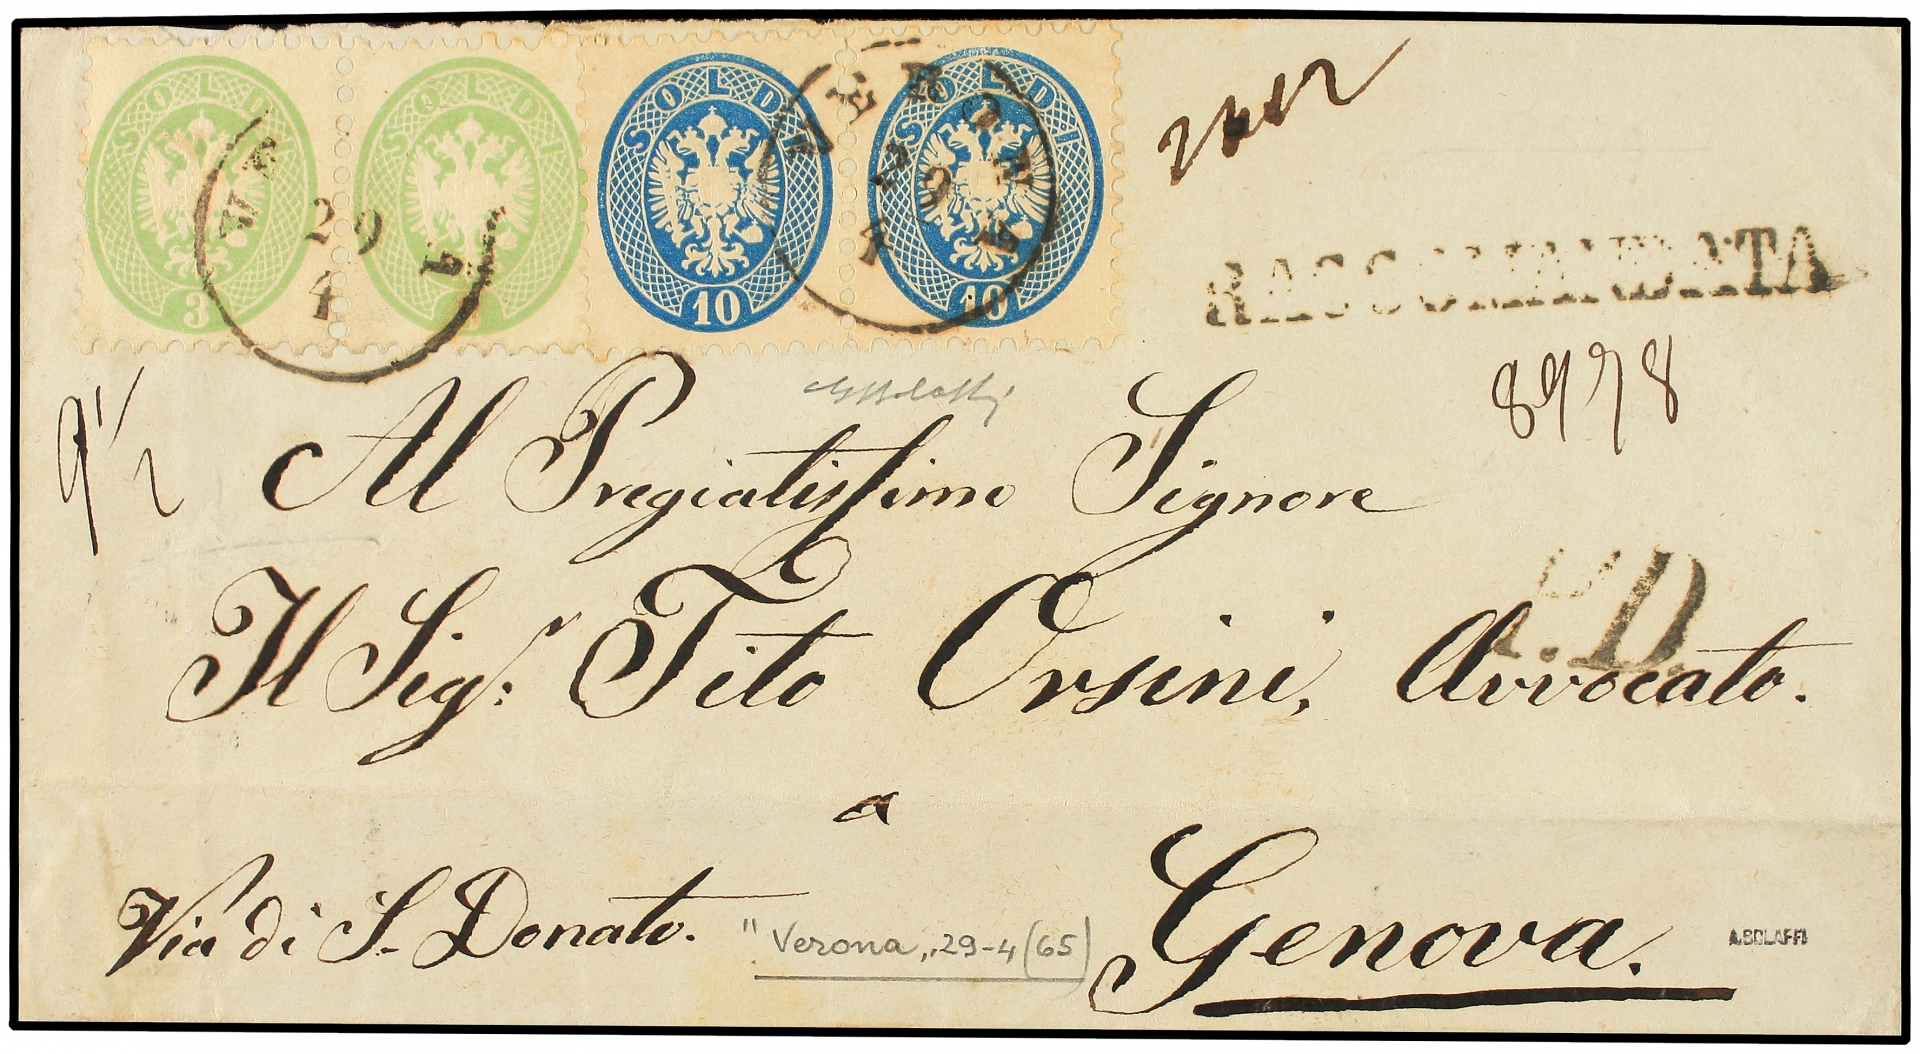 SOLDI SOLDI SOLDI SOLDI
3 10 10
VE
29
4
E
VERONA
29
4
RACCOMANDATA
8978
9 1/2
Al Pregiatissimo Signore
P.D.
Il Sigr: Tito Orsini, Avvocato.
a
Via di S. Donato.
Genova.
"Verona, 29-4 (65)
A.BOLAFFI